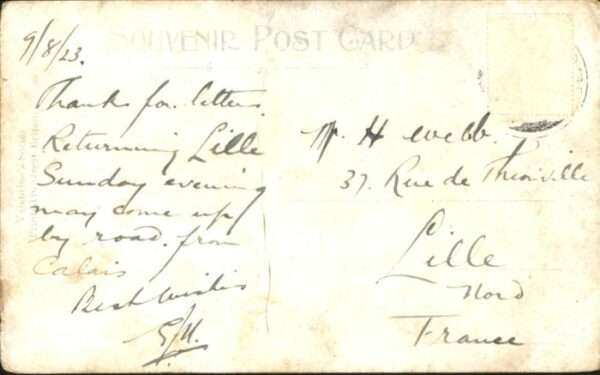 SOUVENIR POST CARD
9/8/23.
Thanks for letters.
Returning Lille
Sunday evening
may come up
by road. from
Calais
Best Wishes
Mr H Webb.
37. Rue de Thionville
Lille
Nord
France